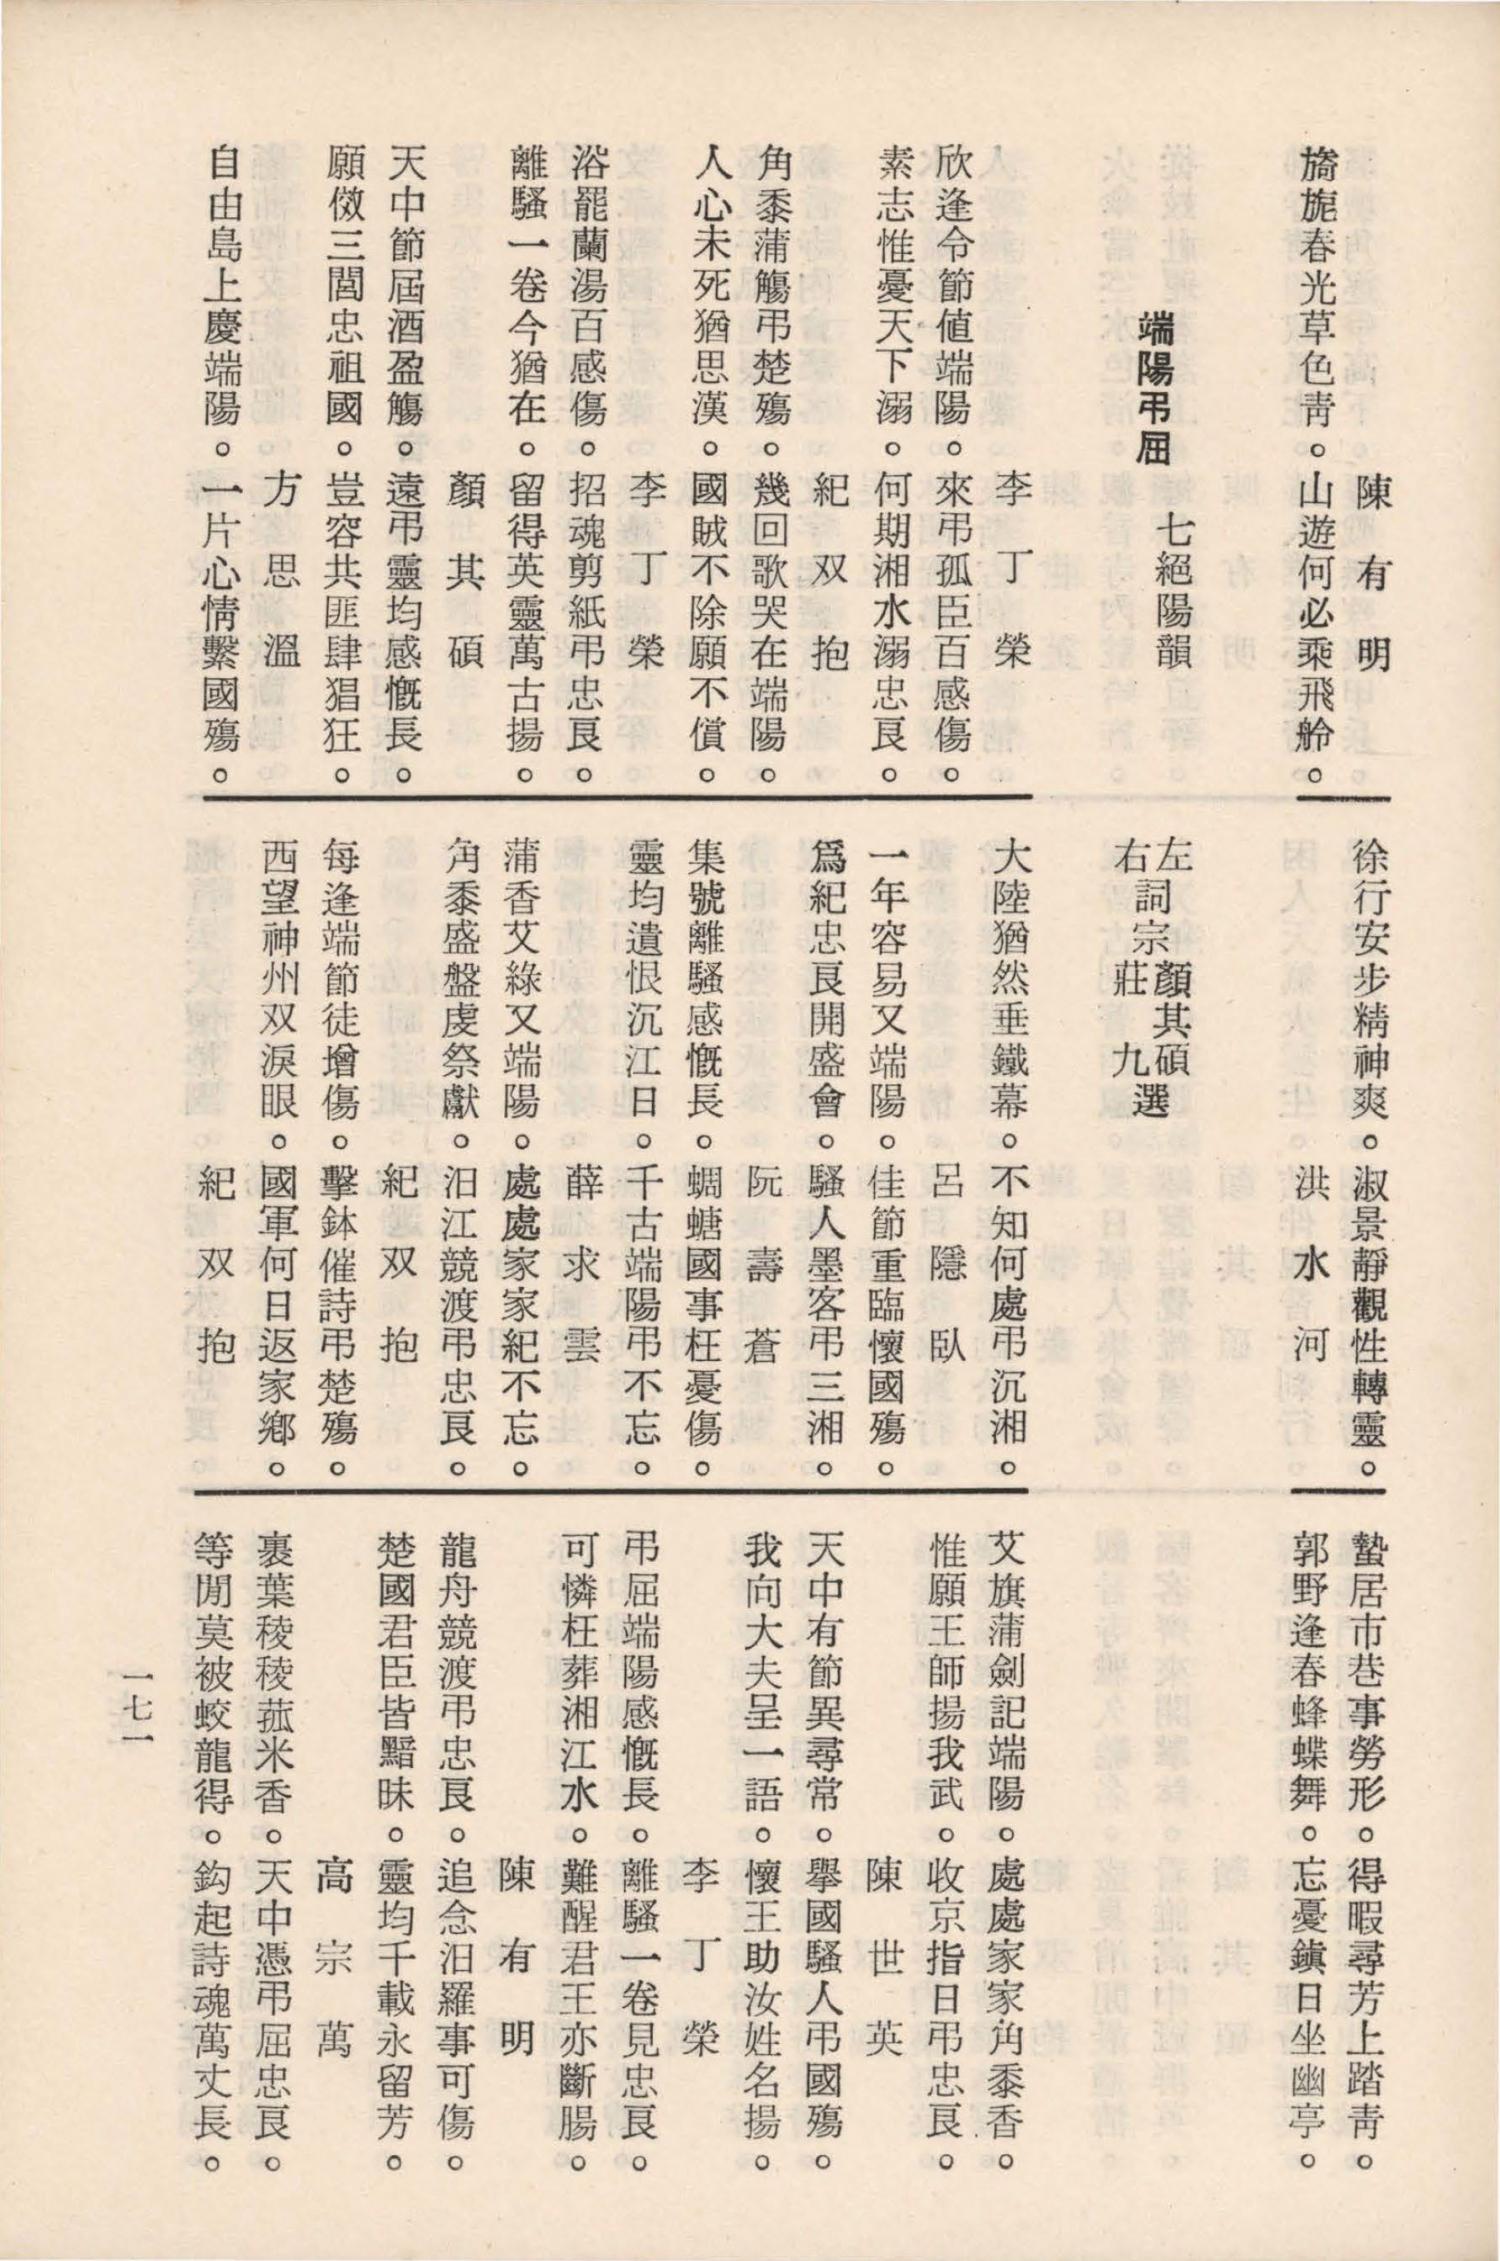 陳有明
旖旎春光草色靑。山遊何必乘飛舲。
徐行安步精神爽。淑景靜觀性轉靈。
洪水河
蟄居市巷事勞形。得暇尋芳上踏靑。
郭野逢春蜂蝶舞。忘憂鎭日坐幽亭。
端陽弔屈 七絕陽韻
左右詞宗 顏其碩 莊九 選
李丁榮
欣逢令節値端陽。來弔孤臣百感傷。
素志惟憂天下溺。何期湘水溺忠良。
紀双抱
角黍蒲觴弔楚殤。幾回歌哭在端陽。
人心未死猶思漢。國賊不除願不償。
李丁榮
浴罷蘭湯百感傷。招魂剪紙弔忠良。
離騷一卷今猶在。留得英靈萬古揚。
顏其碩
天中節屆酒盈觴。遠弔靈均感慨長。
願傚三閭忠祖國。豈容共匪肆猖狂。
方思溫
自由島上慶端陽。一片心情繫國殤。
大陸猶然垂鐵幕。不知何處弔沉湘。
呂隱臥
一年容易又端陽。佳節重臨懷國殤。
爲紀忠良開盛會。騷人墨客弔三湘。
阮壽蒼
集號離騷感慨長。蜩螗國事枉憂傷。
靈均遺恨沉江日。千古端陽弔不忘。
薛求雲
蒲香艾綠又端陽。處處家家紀不忘。
角黍盛盤虔祭獻。汨江競渡弔忠良。
紀双抱
每逢端節徒增傷。擊鉢催詩弔楚殤。
西望神州双淚眼。國軍何日返家鄕。
紀双抱
艾旗蒲劍記端陽。處處家家角黍香。
惟願王師揚我武。收京指日弔忠良。
陳世英
天中有節異尋常。擧國騷人弔國殤。
我向大夫呈一語。懷王助汝姓名揚。
李丁榮
弔屈端陽感慨長。離騷一卷見忠良
可憐枉葬湘江水。難醒君王亦斷腸。
陳有明
龍舟競渡弔忠良。追念汨羅事可傷。
楚國君臣皆黯昧。靈均千載永留芳。
高宗萬
裹葉稜稜菰米香。天中憑弔屈忠良。
等閒莫被蛟龍得。鈎起詩魂萬丈長。
一七一